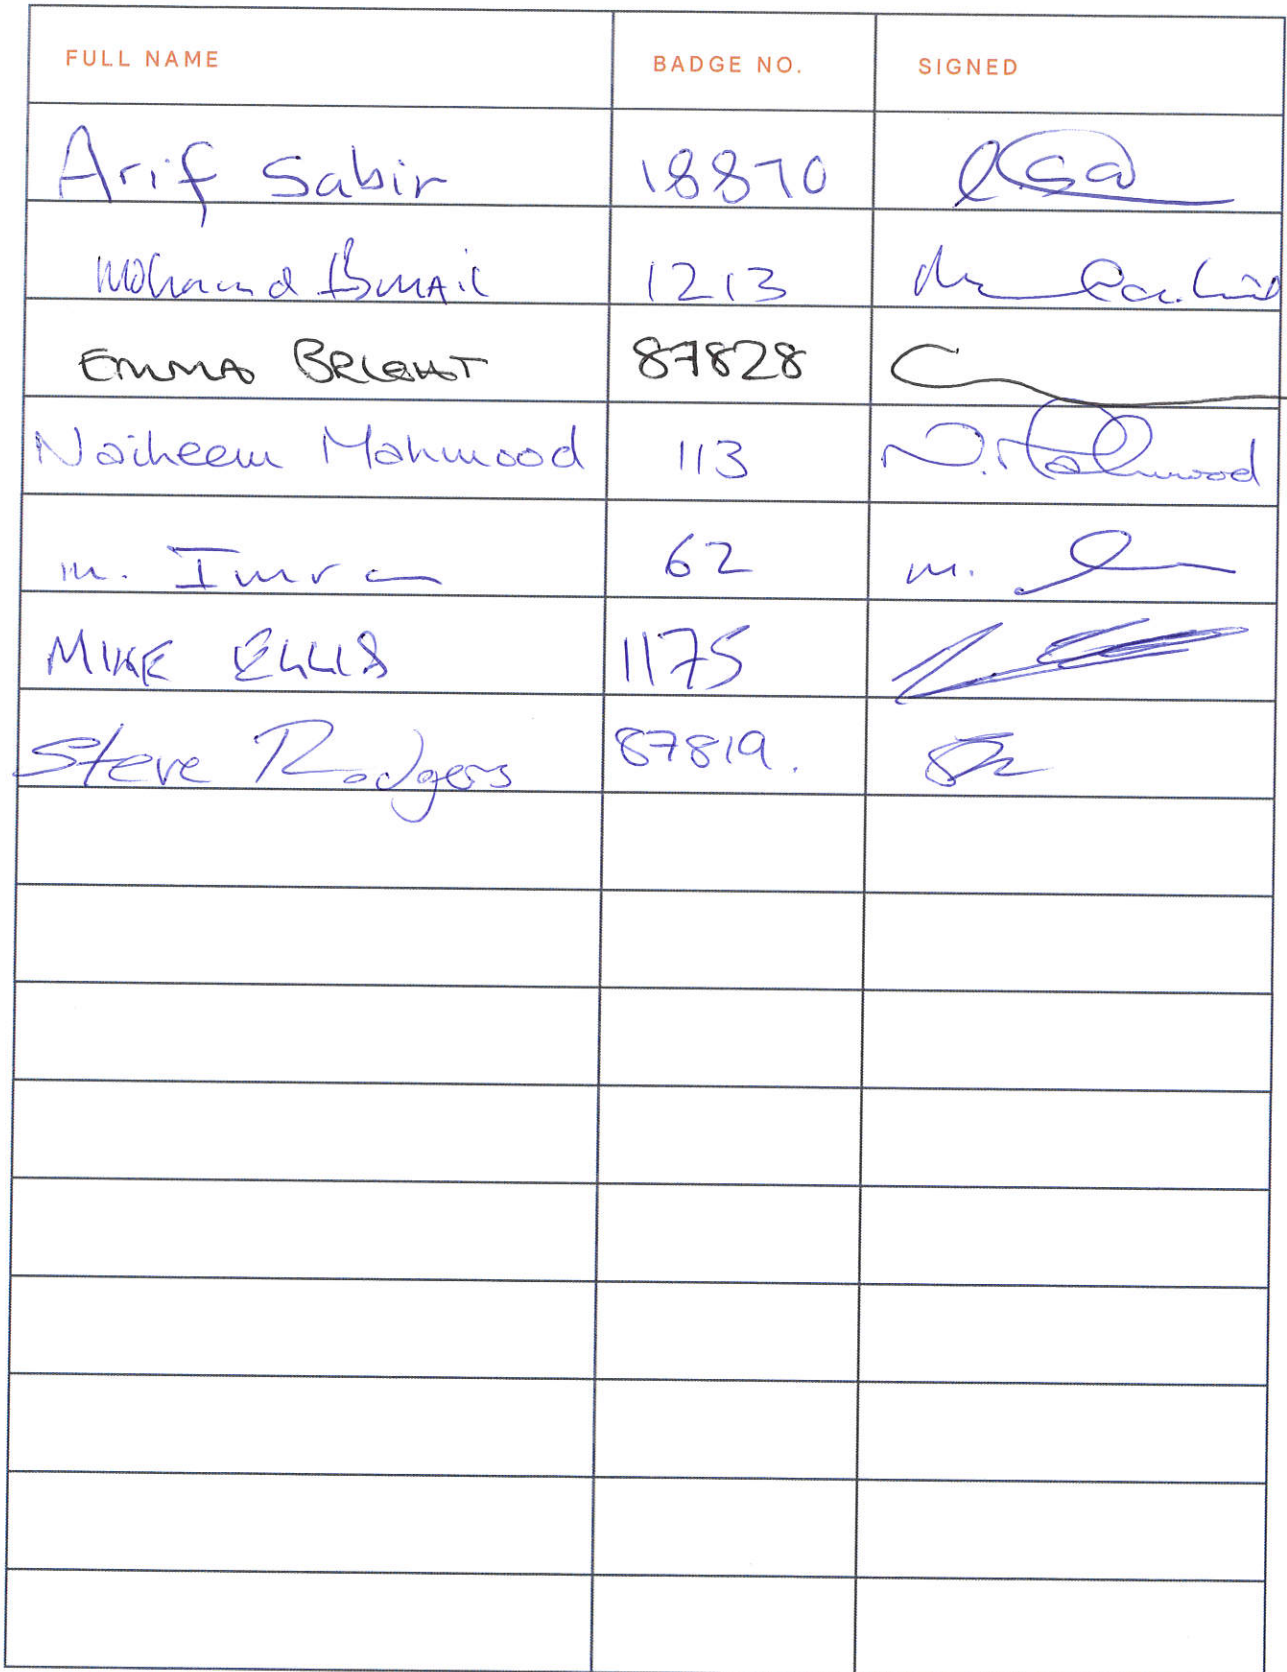 FULL NAME BADGE NO. SIGNED
Arif Sabir 18870
Ismail 1213
EMMA BRIGHT 87828
Naiheem Mahmood 113 N. Mahmood
m. Imran 62 m.
MIKE ELLIS 1175
Steve Rodgers 87819.